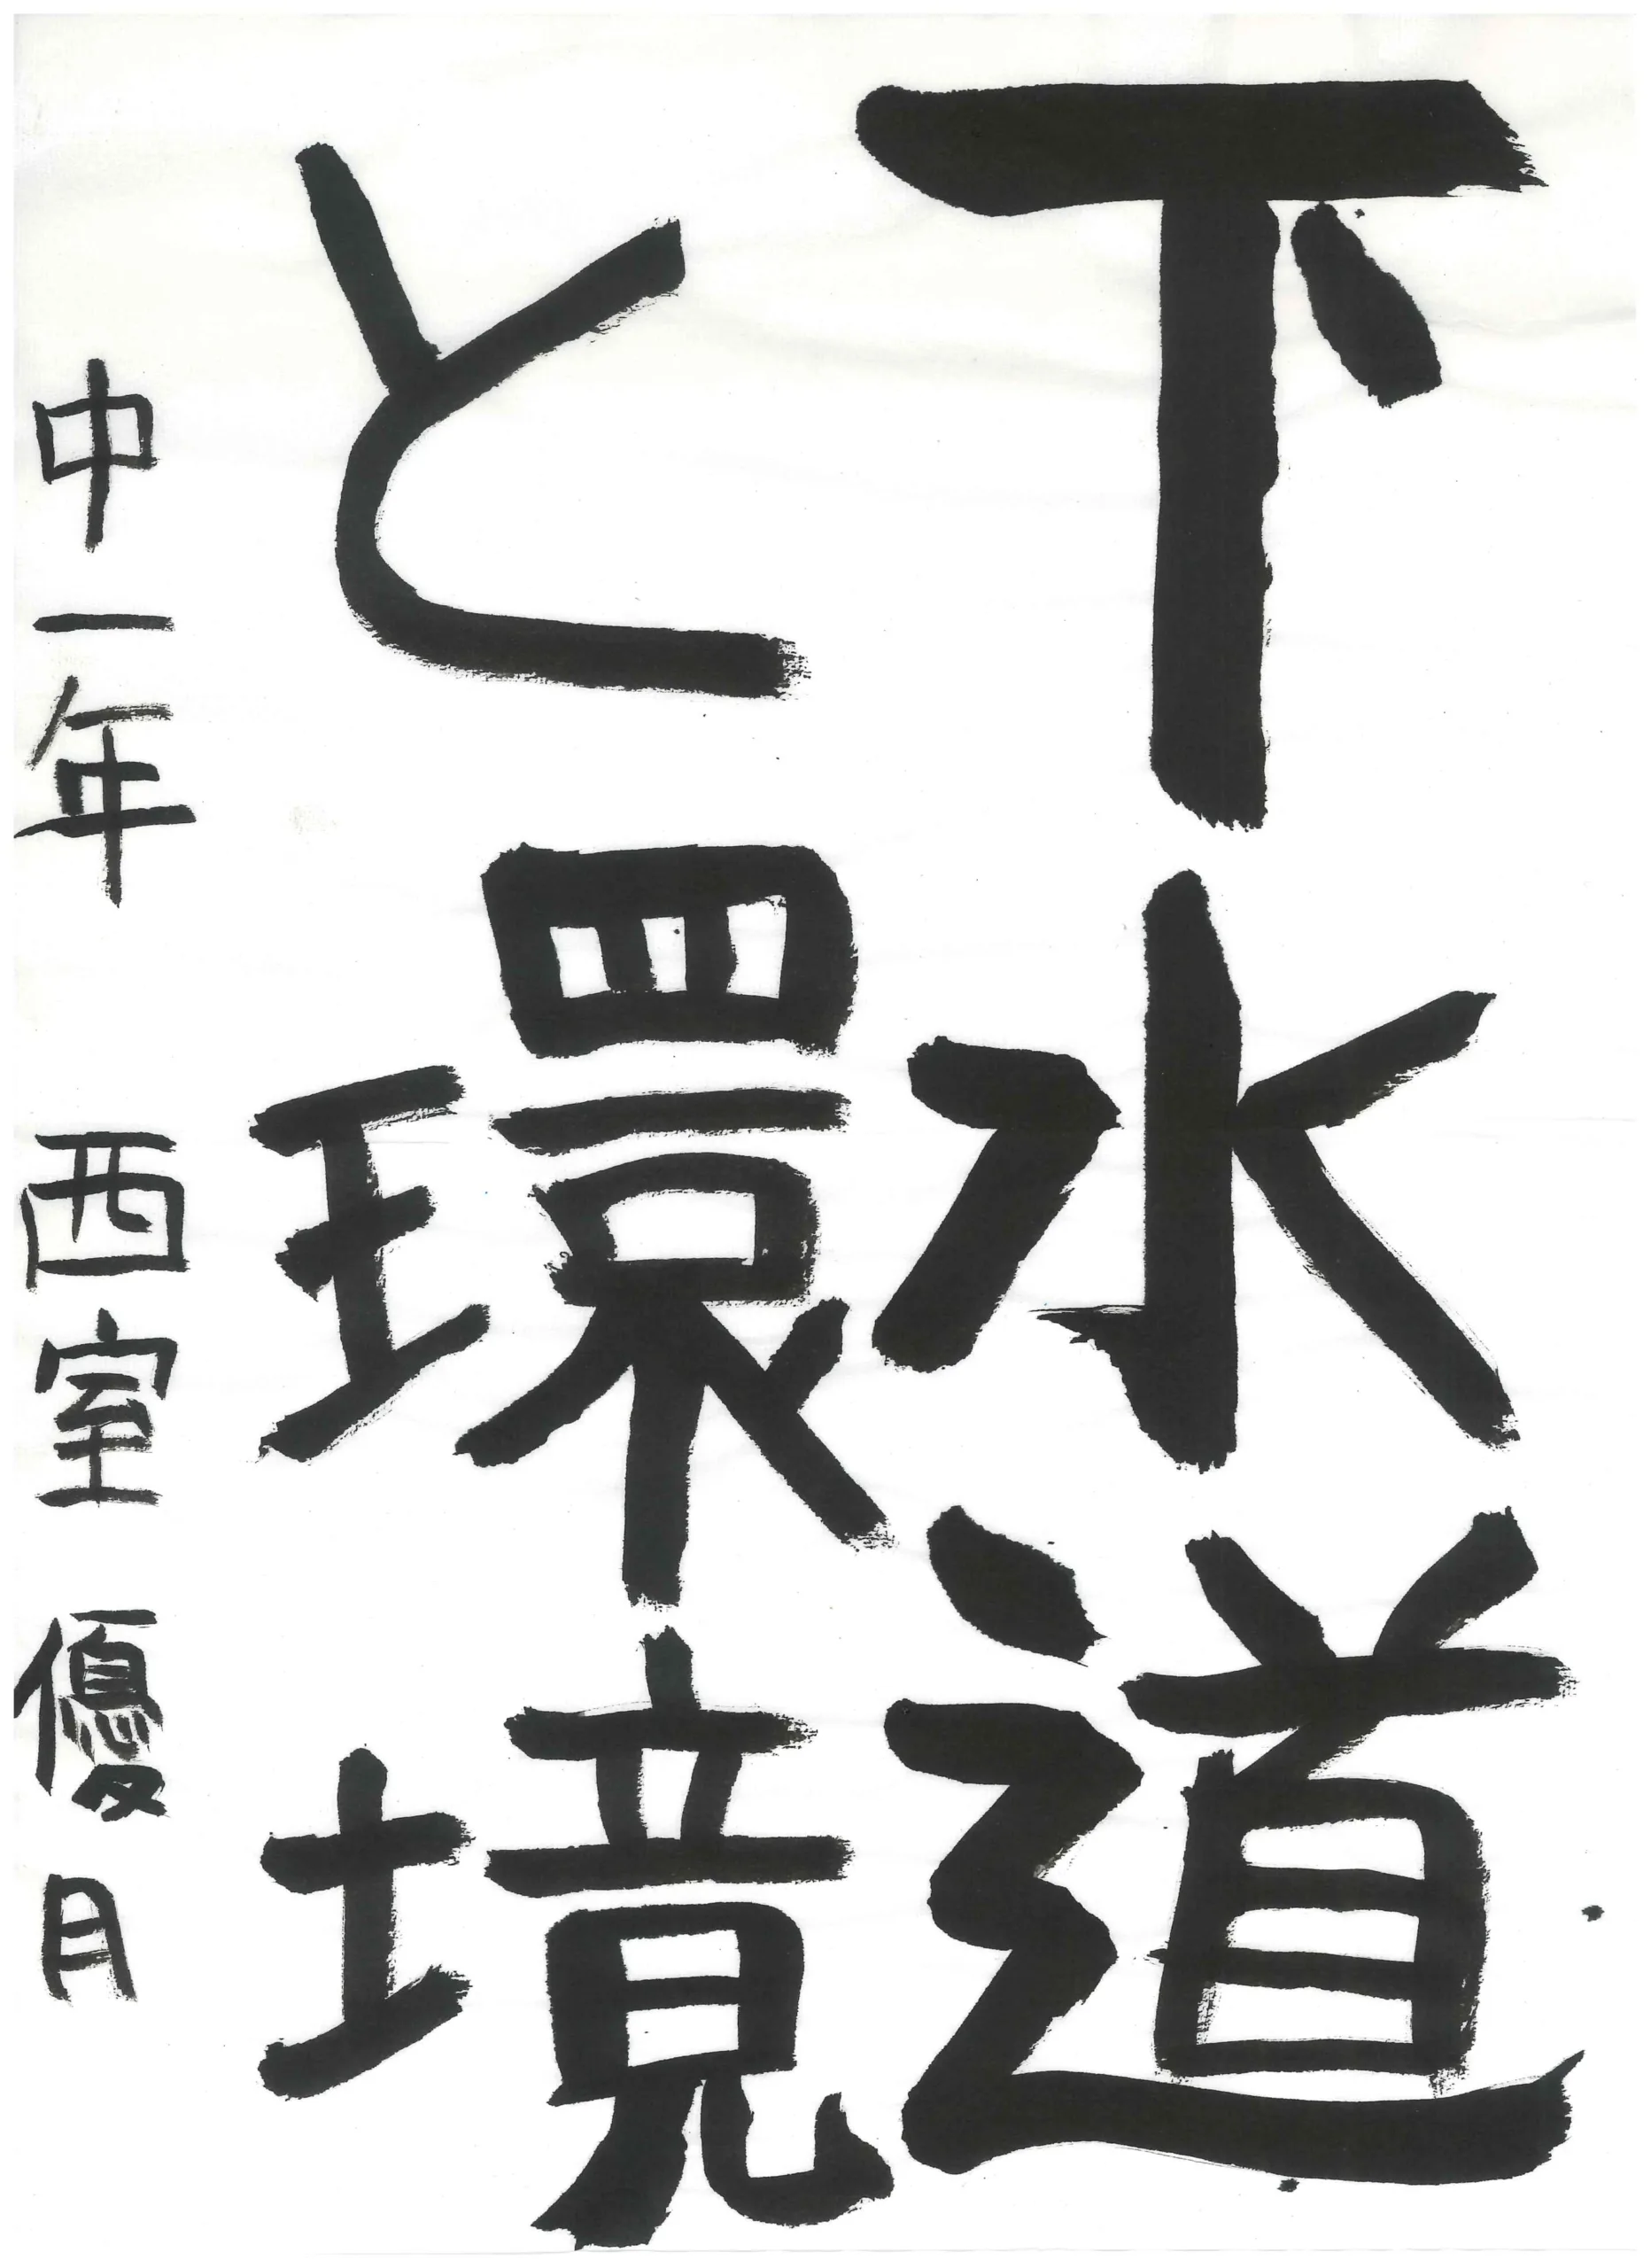 下水道
と環境
中一年 西室優月